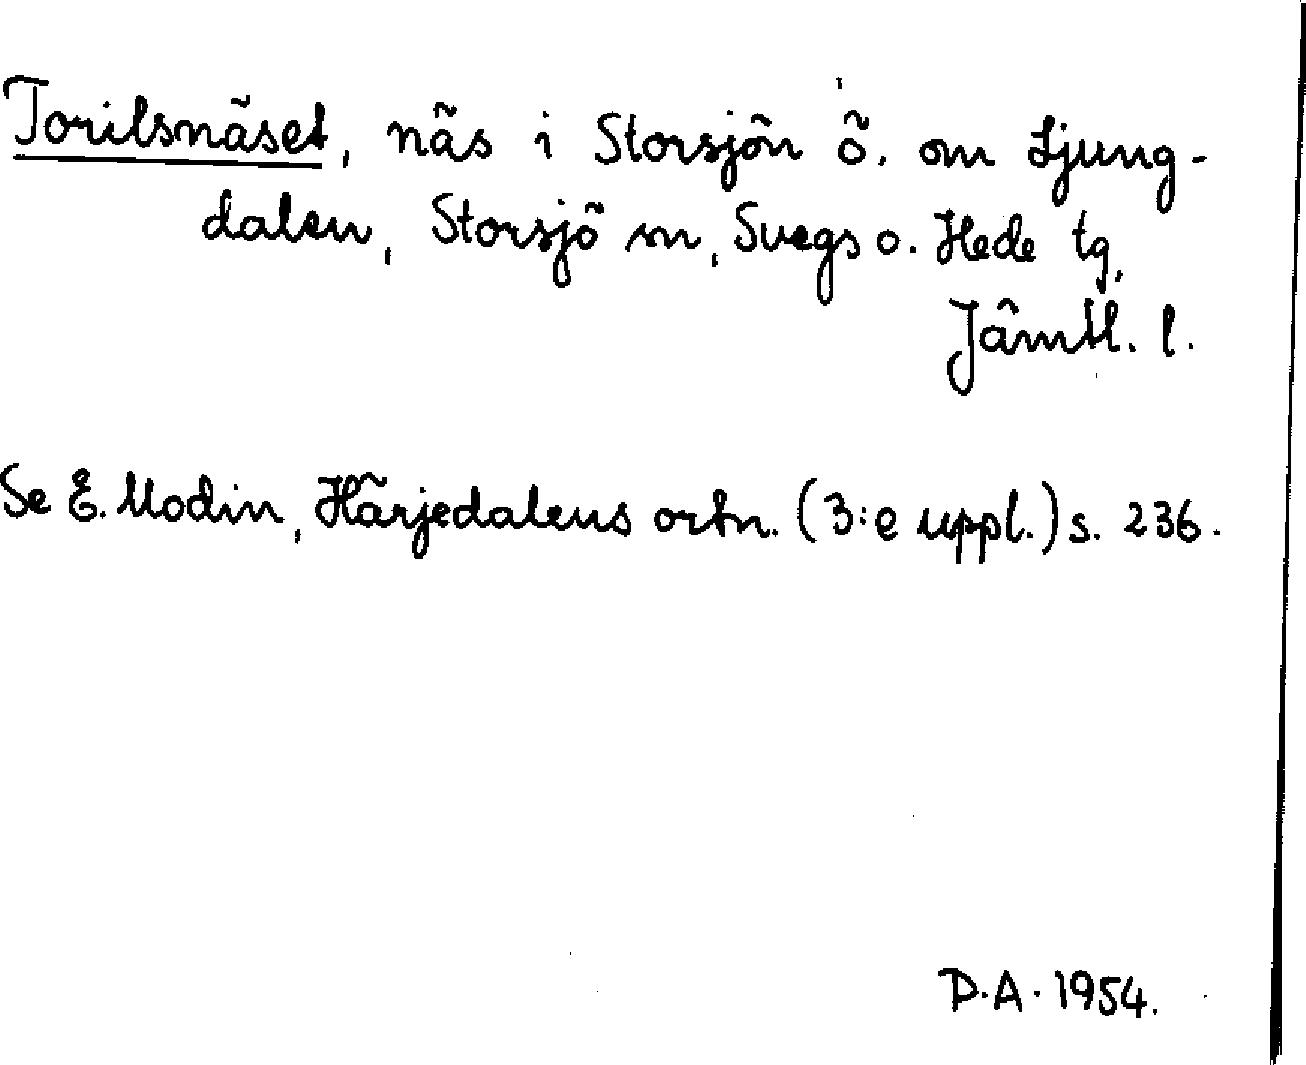 Torilsnäset, näs i Storsjön ö. om Ljung-
dalen, Storsjö sn, Svegs o. Hede tg,
Jämtl. l.
Se E. Modin, Härjedalens ortn. (3:e uppl.) s. 236.
D.A. 1954.